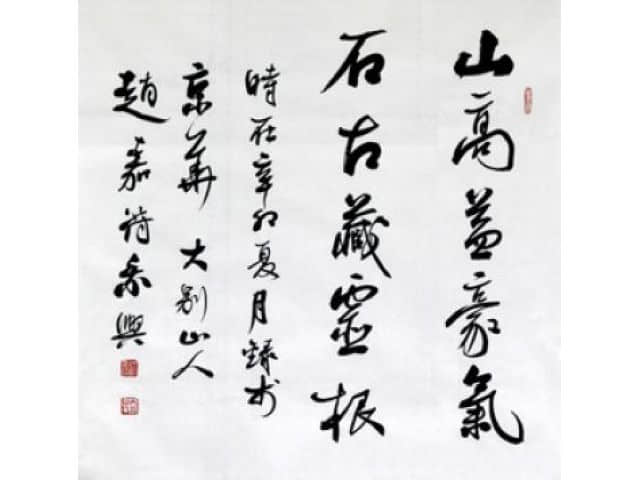 山高益豪氣
石古藏靈根
時在辛卯夏月錄於
京華 大別山人
趙嘉詩秉興